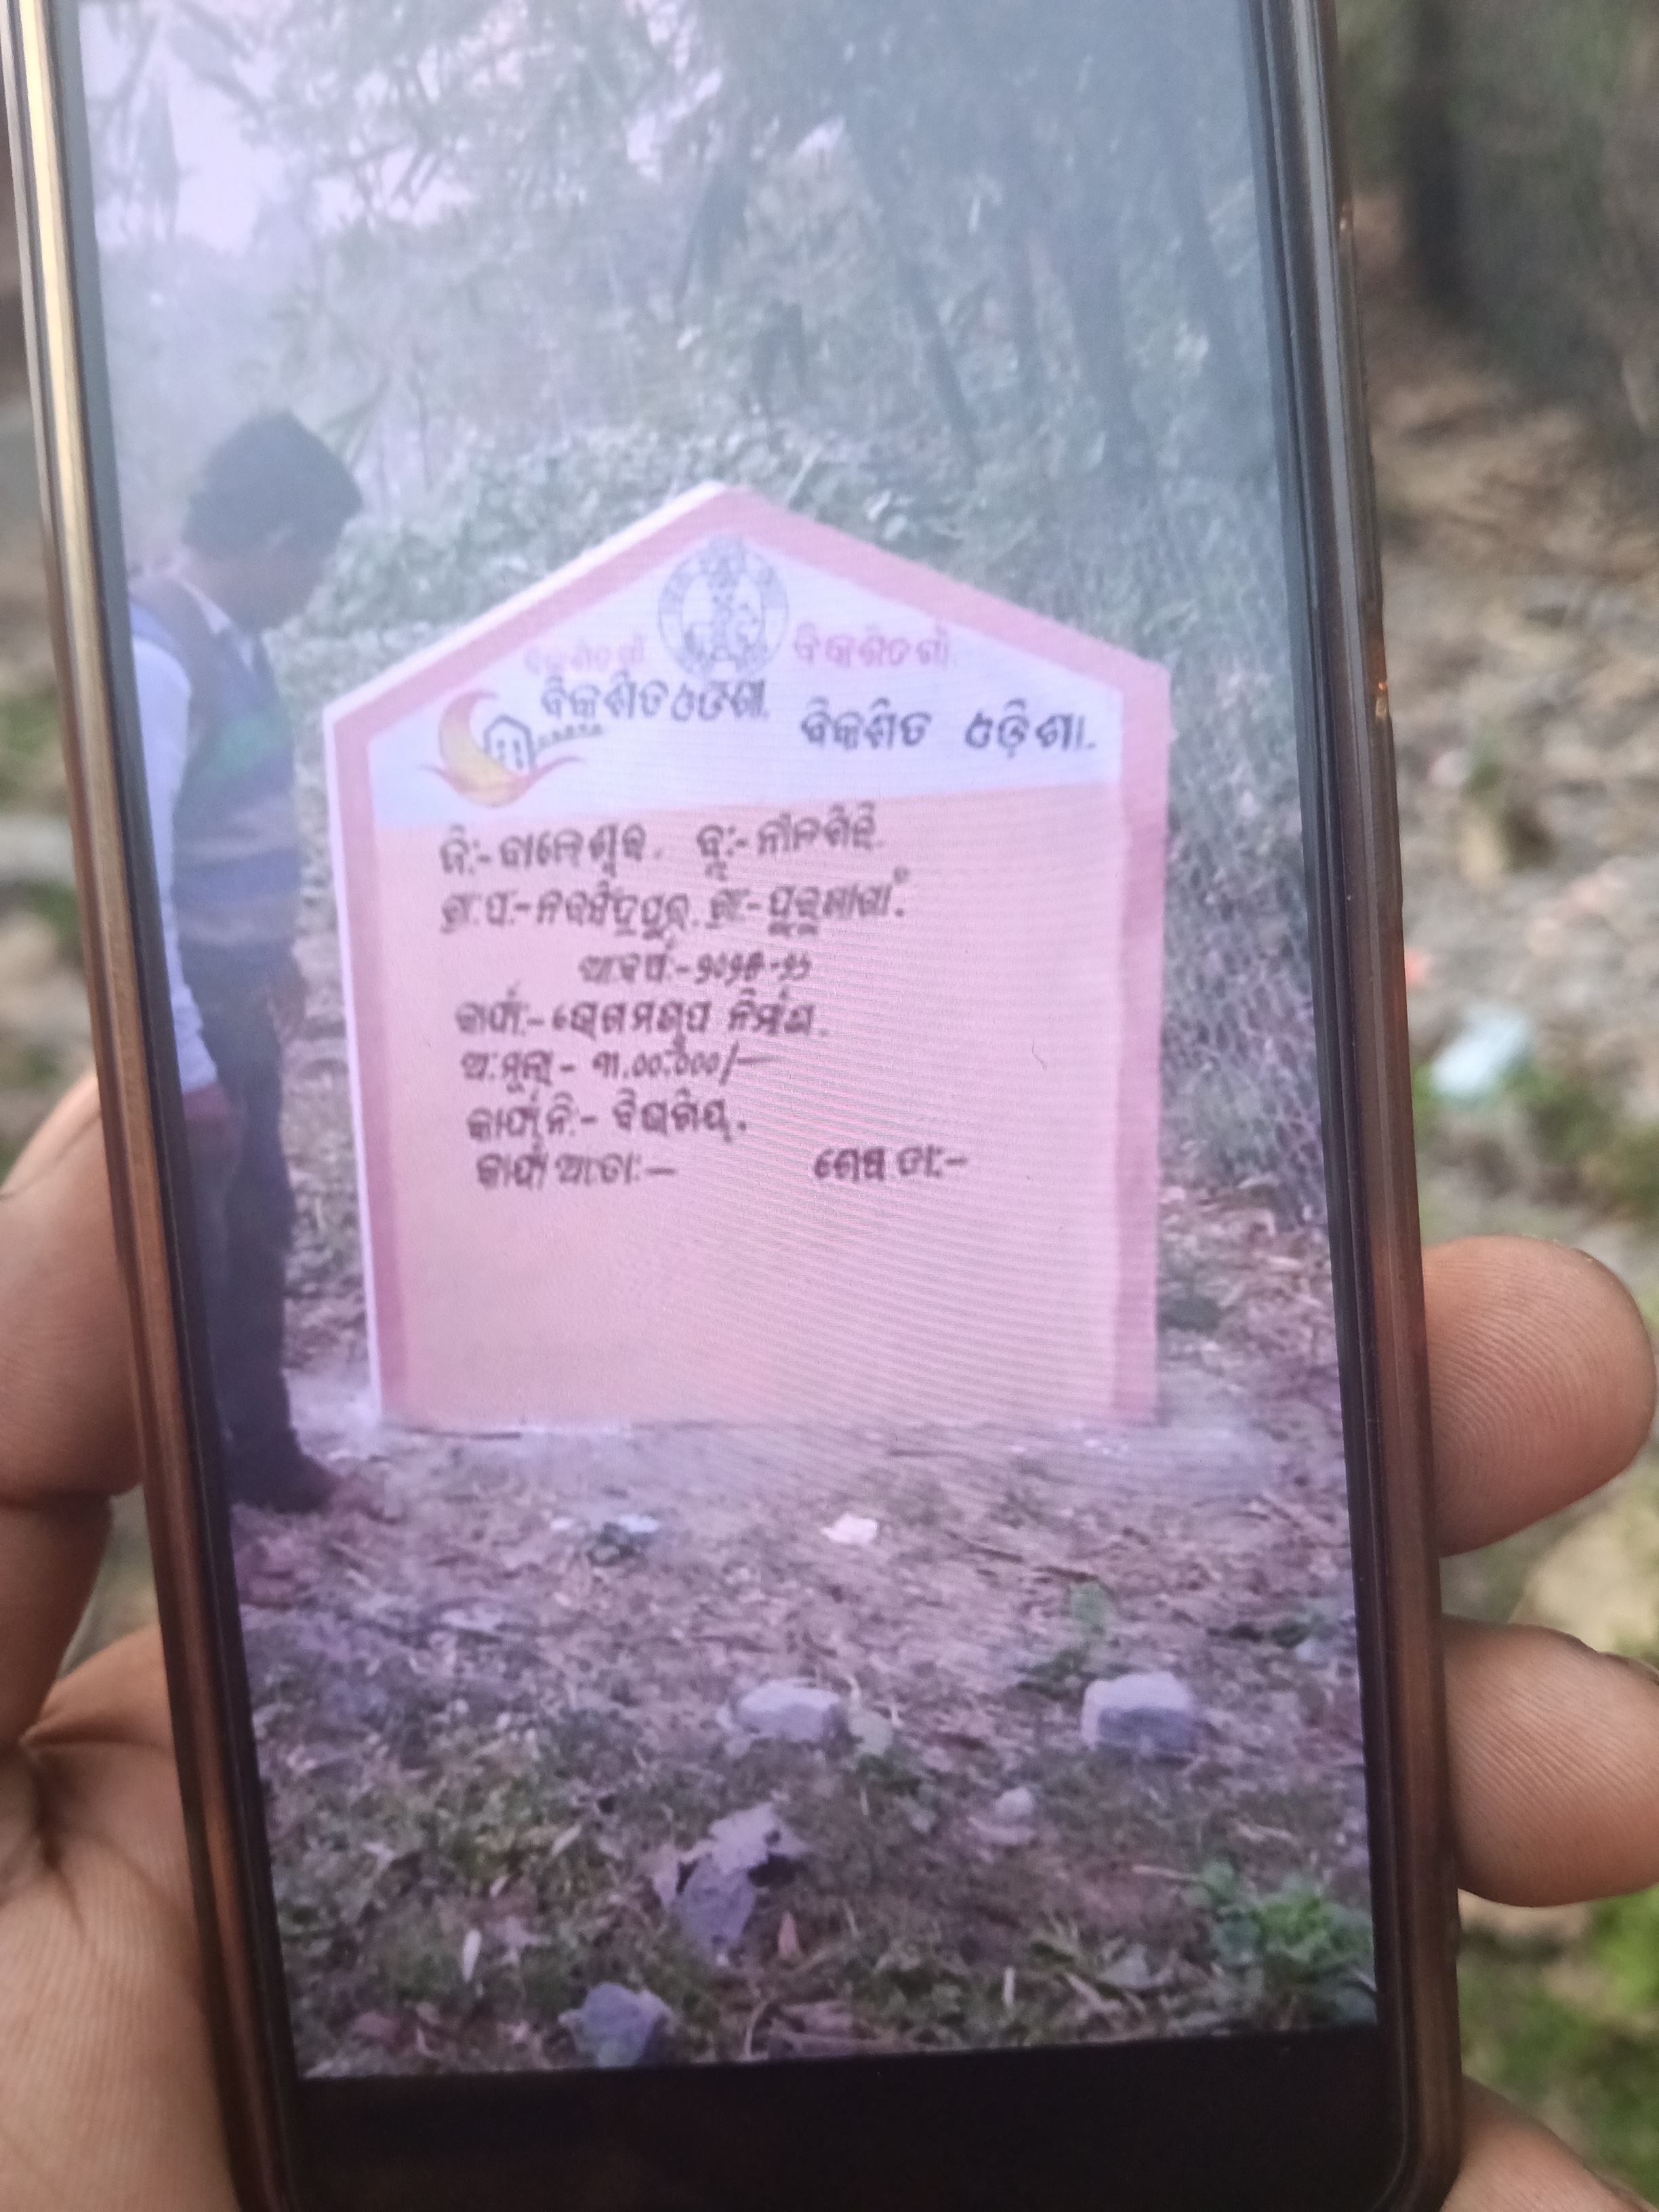 ବିକଶିତ ଗାଁ ବିକଶିତ ଗାଁ
ବିକଶିତ ଓଡିଶା. ବିକଶିତ ଓଡ଼ିଶା.
ଜି:- ବାଲେଶ୍ୱର. ବ୍ଲ:- ନୀଳଗିରି.
ଗ୍ରା.ପ:- ନରସିଂହପୁର. ଗ୍ରା:-
ଆ.ବର୍ଷ:- ୨୦୨୫-୨୬
କାର୍ଯ୍ୟ:- ଭୋଗମଣ୍ଡପ ନିର୍ମାଣ.
ଅ.ମୂଲ୍ୟ - ୩.୦୦.୦୦୦/-
କାର୍ଯ୍ୟ ନି:- ବିଭାଗିୟ.
କାର୍ଯ୍ୟ ଆ:ତା:- ଶେଷ ତା:-